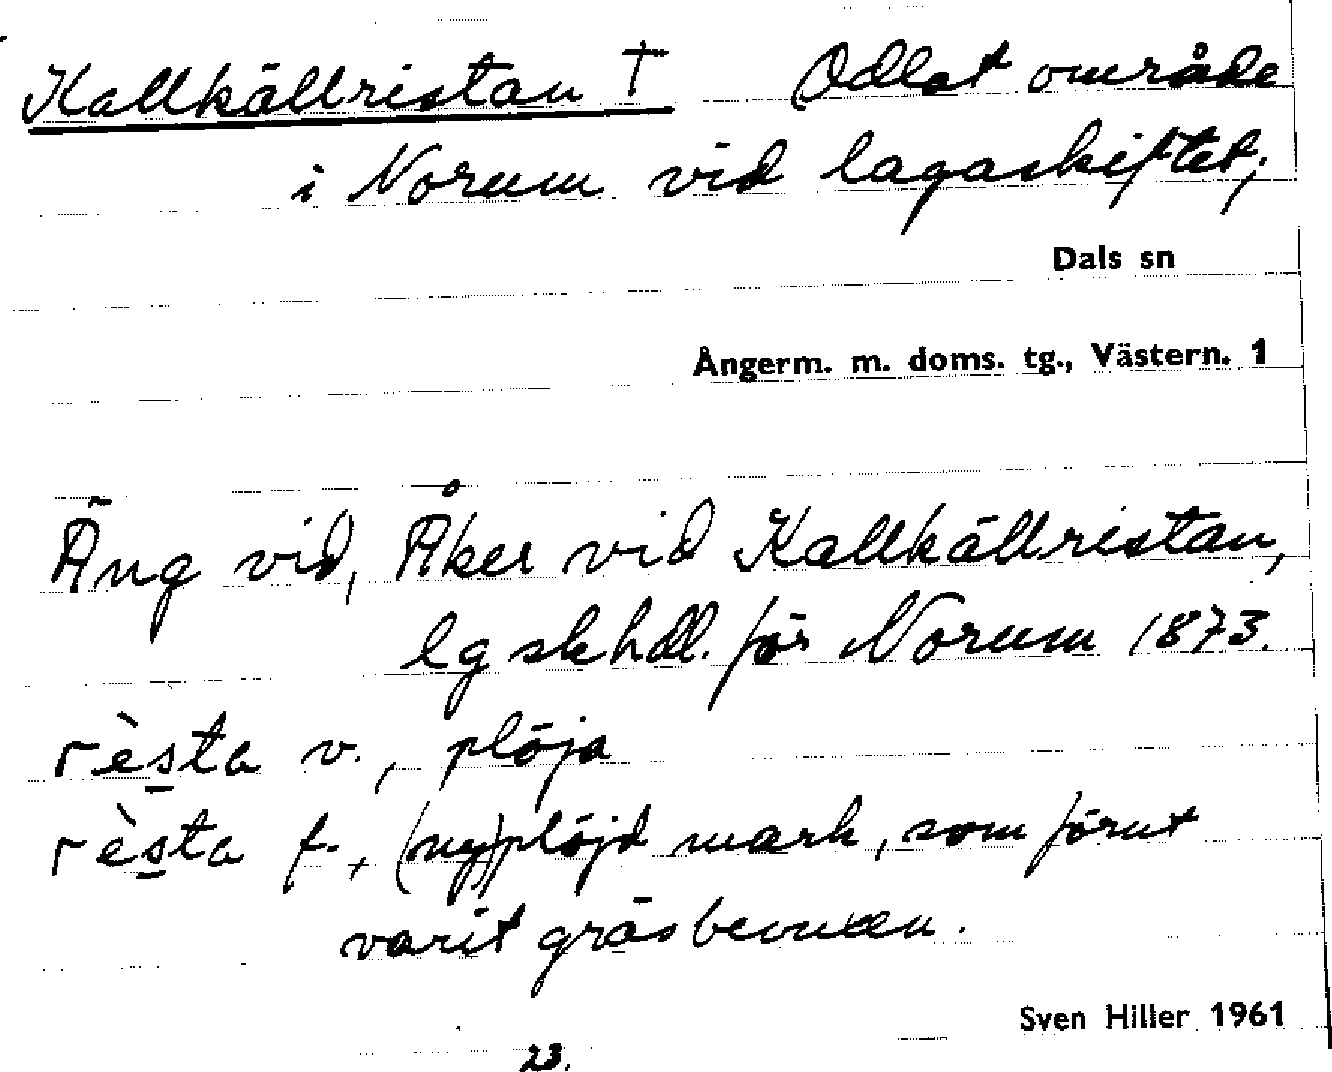 Kallkällristan † Odlat område
i Norum vid lagaskiftet;
Dals sn
Ångerm. m. doms. tg., Västern. 1
Äng vid, Åker vid Kallkällristan,
lg sk hdl. för Norum 1873.
rèsta v., plöja
rèsta f., (ny)plöjd mark, som förut
varit gräsbevuxen.
Sven Hiller 1961
23.